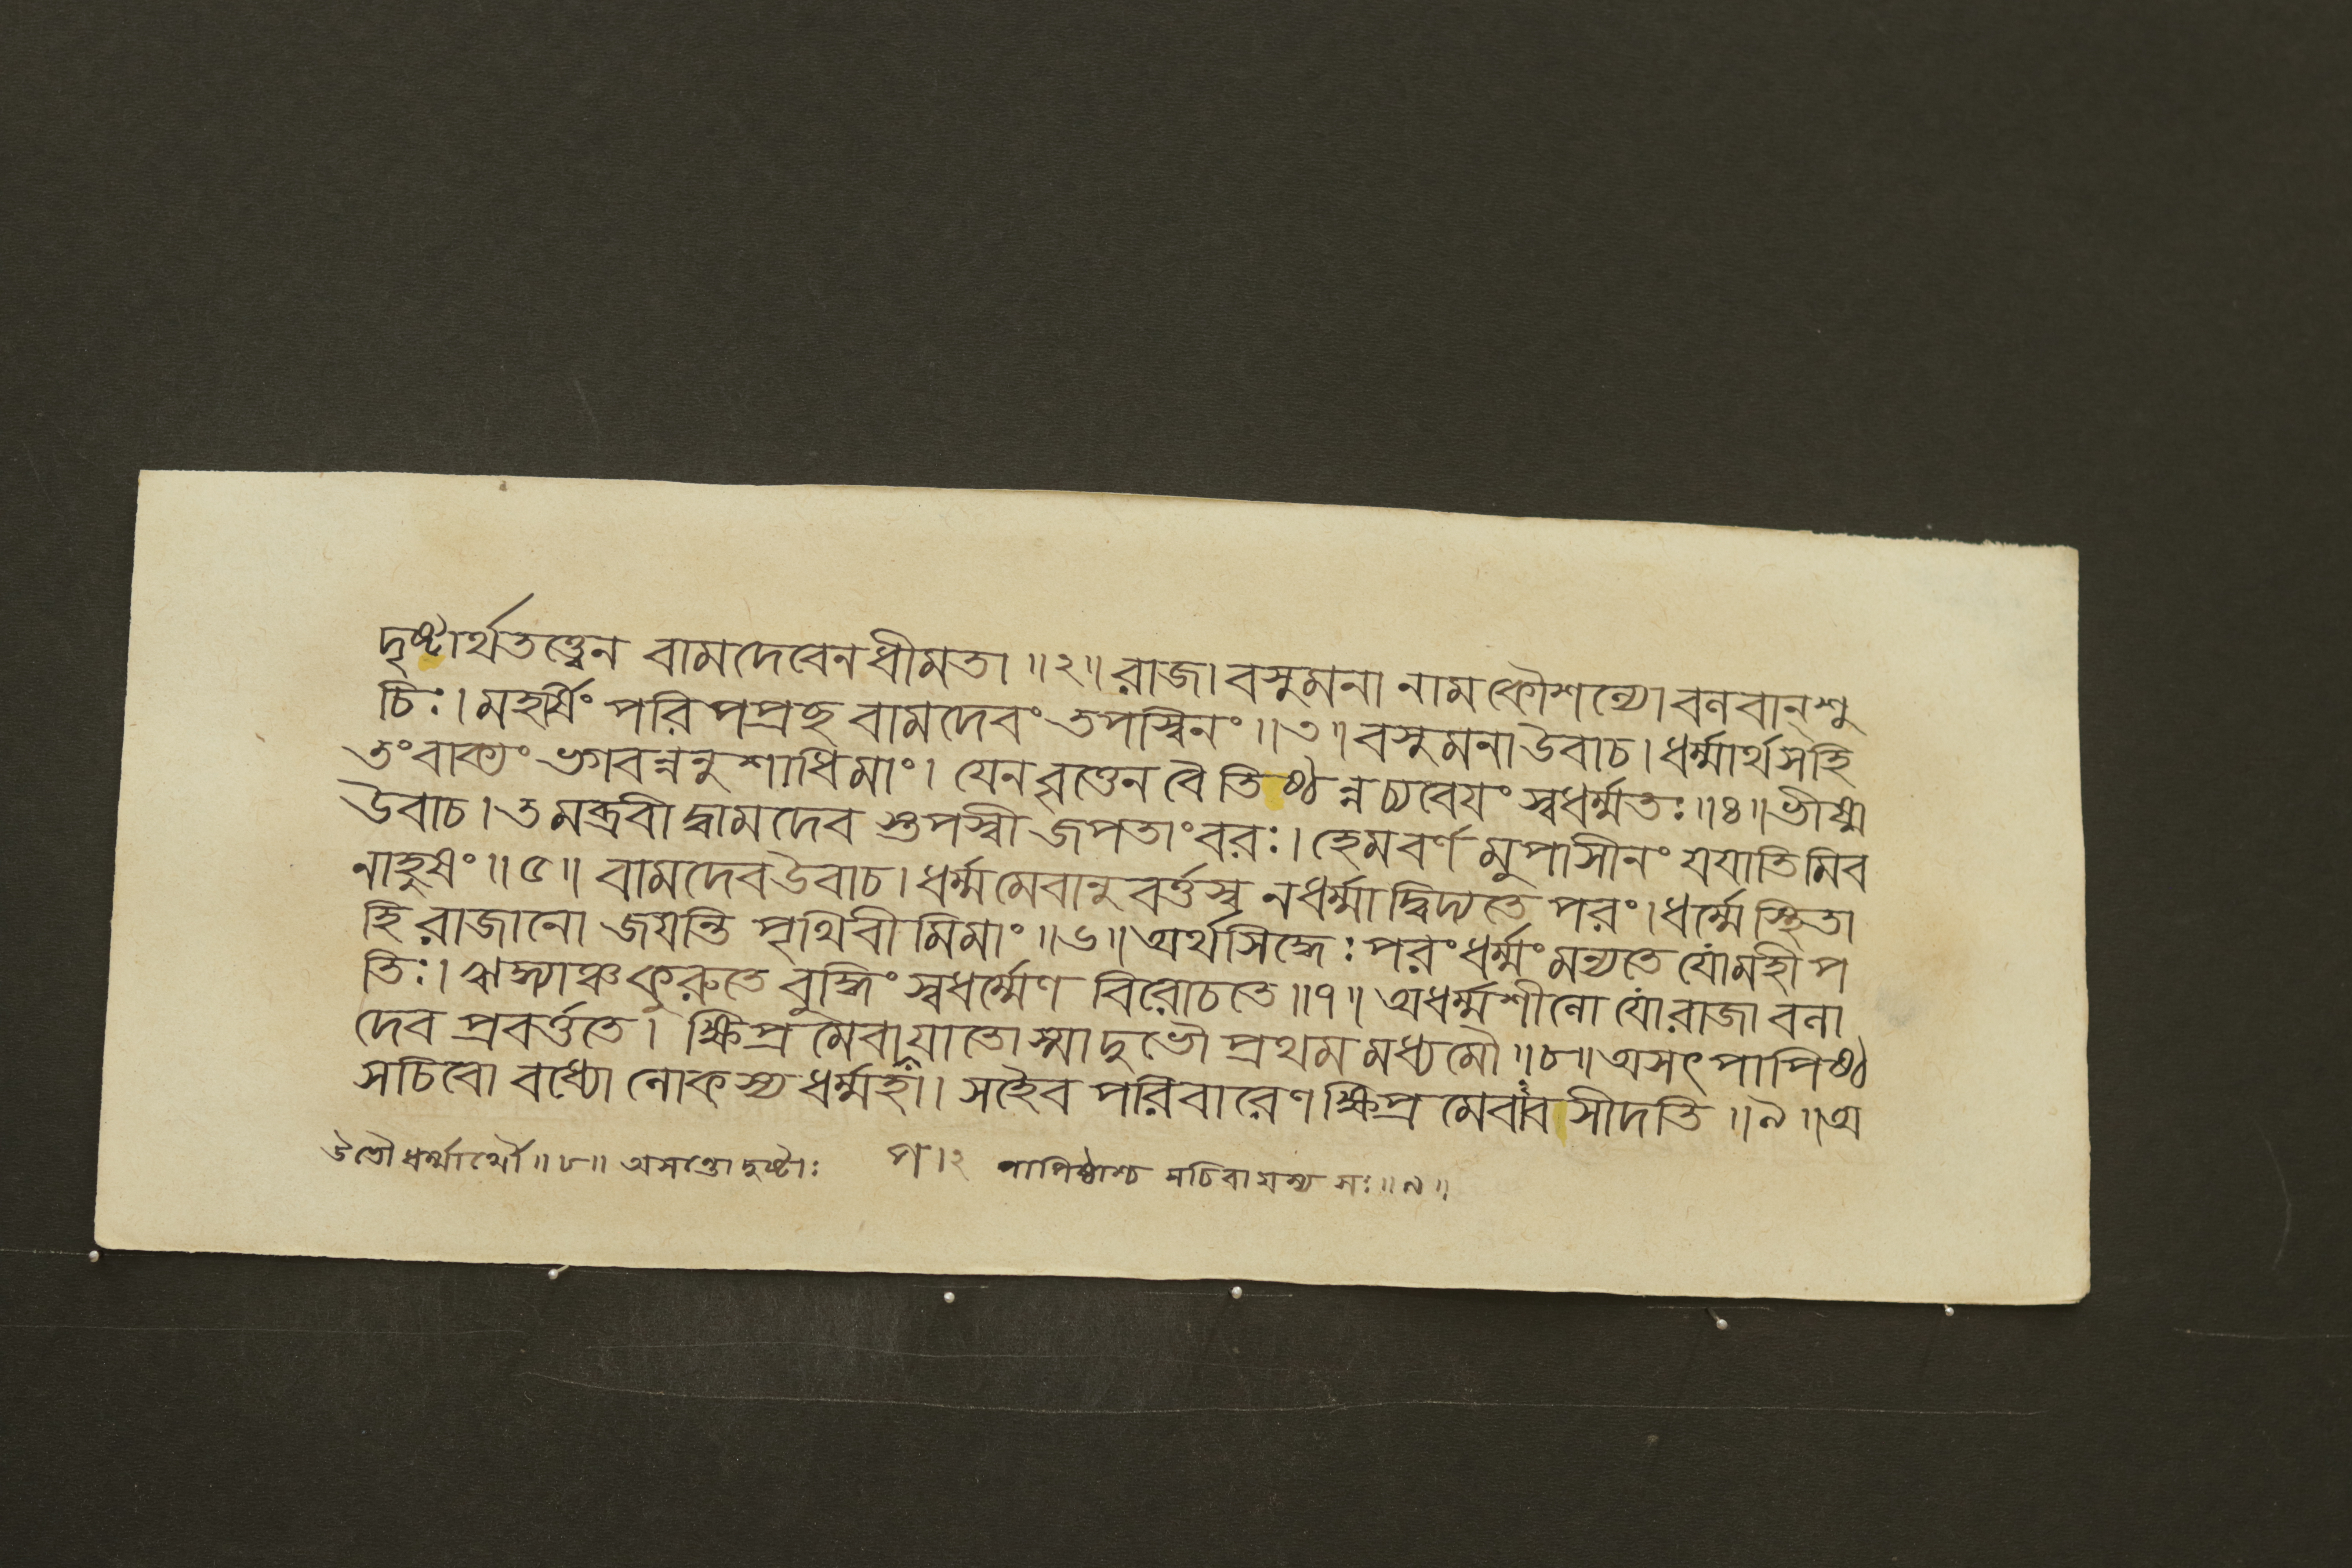 দৃষ্টার্থতত্ত্বেন বামদেবেনধীমতা ॥২॥ রাজা বসুমনা নাম কৌশল্যো বলবান্ শু
চিঃ। মহর্ষিং পরি পপ্রচ্ছ বামদেবং তপস্বিনং ॥৩॥ বসুমনা উবাচ। ধর্ম্মার্থসহি
তং বাক্যং ভগবন্ননুশাধিমাং। যেন বৃত্তেন বৈ তিষ্ঠন্ন চ্যবেয়ং স্বধর্ম্মতঃ ॥৪॥ ভীষ্ম
উবাচ। তমব্রবীদ্বামদেব স্তপস্বী জপতাং বরঃ। হেমবর্ণমুপাসীনং যযাতিমিব
নাহুষং ॥৫॥ বামদেব উবাচ। ধর্ম্মমেবানুবর্ত্তস্ব নধর্ম্মাদ্বিদ্যতে পরং। ধর্ম্মে স্থিতা
হি রাজানো জয়ন্তি পৃথিবীমিমাং ॥৬॥ অর্থসিদ্ধেঃ পরং ধর্ম্মং মন্যতে যো মহীপ
তিঃ। ঋদ্ধ্যাঞ্চ কুরুতে বুদ্ধিং স্বধর্ম্মেণ বিরোচতে ॥৭॥ অধর্ম্মশীলো যো রাজা বলা
দেব প্রবর্ত্ততে। ক্ষিপ্রমেবাপযাতোস্মাদুভৌ প্রথমমধ্যমৌ ॥৮॥ অসৎপাপিষ্ঠ
সচিবো বধ্যো লোকস্য ধর্ম্মহা। সহৈব পরিবারেণ ক্ষিপ্রমেবাবসীদতি ॥৯॥ অ
উভৌ ধর্ম্মার্থৌ ॥৮॥ অসন্তো দুষ্টাঃ প।২ পাপিষ্ঠাশ্চ সচিবা যস্য সঃ ॥৯॥